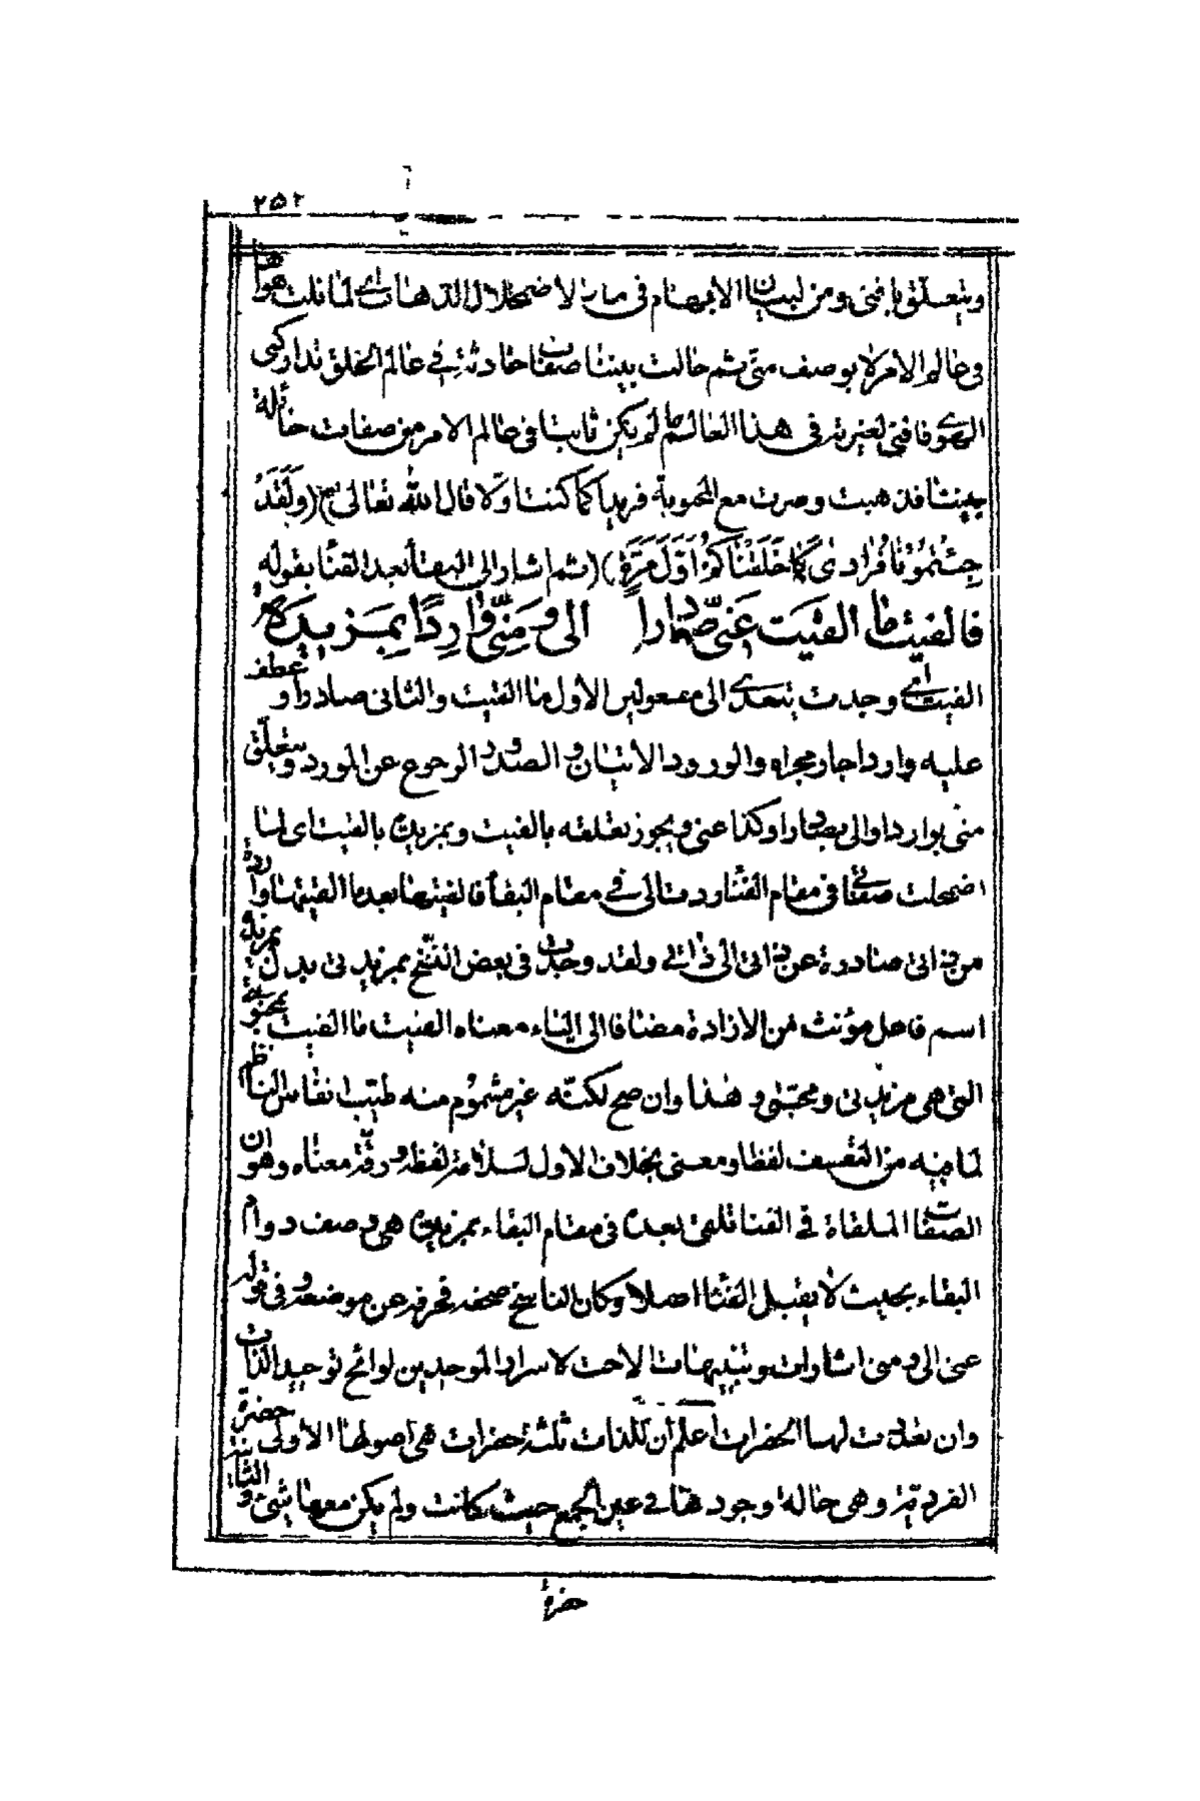 ٢٥٢
ويتعلّق بافنى ومن لبيان الابهام فى ما بنا لا ضمحلال الذهاب اى لما نلت هواها
فى عالم الامر لا بوصف منّى ثم حالت بيننا صفات حادثة فى عالم الخلق تداركنى
الهوى فافنى بغيرته فى هذا العالم ما لم يكن ثابتا فى عالم الامر من صفات حائلة
بيننا فذهبت وصرت مع المحبوبة فريدا كما كنت اوّلا قال الله تعالى (ولَقَد
جِئْتُمُونَا فُرَادىٰ كَمَا خَلَقْنَاكُمْ اَوَّلَ مَرَّةٍ) (ثم اشار الى البقاء بعد الفناء بقوله
فالفيت ما الفيت عَنّى صادراً الىّ ومِنّى وَارِدًا بِمَزيدَتى
الفيت اى وجدت يتعدى الى مفعولين الاول ما الفيت والثانى صادرا و عطف
عليه واردا جار مجراه والورود الاتيان والصدور الرجوع عن المورد ويتعلّق
منى بواردا والى بصادرا وكذا عنى ويجوز تعلقه بالفيت وبمزيدتى بالفيت اى لما
اضمحلت صفاتى فى مقام الفناء ردت الى فى مقام البقاء فالفيتها بعد ما الفيتها واردة
من ذاتى صادرة عن ذاتى الى ذاتى ولقد وجدت فى بعض النسخ بمزيدتى بدل بمزيدتى
اسم فاعل مؤنث من الارادة مضافا الى الياء معناه الفيت ما الفيت بمحبوبة
التى هى مزيدتى ومحبتى و هذا وان صح لكنّه غير مشموم منه طيب انفاس الناظم
لما فيه من التعسف لفظا ومعنى بخلاف الاول لسلامة لفظه ورقّة معناه وهو ان
الصفات الملقاة فى الفنا تلفى بعده فى مقام البقاء بمزيدتى هى وصف دوام
البقاء بحيث لا يقبل الفناء اصلا وكان الناسخ صحفه فحرفه عن موضعه وفى قوله
عنى الى ومنى اشارات وتنبيهات لاحت لاسرار الموحدين لوائح توحيد الذات
وان بعلت لها الحضرات اعلم ان للذات ثلثة حضرات هى اصولها الاولى حضرة
الفردية وهى حالة وجودها فى عين الجمع حيث كانت ولم يكن معها شئ و الثانية
حضرة